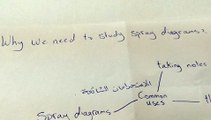 Why we need to study Spray diagrams?
taking notes
الاستخدامات الشائعة
Common
uses
Spray diagrams